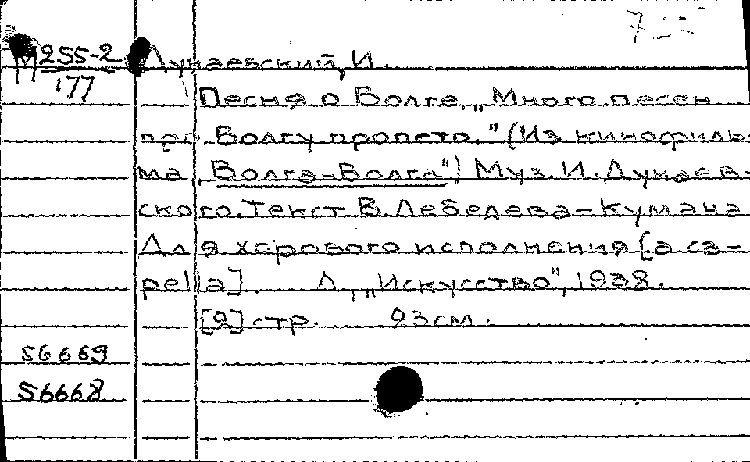 М 255-2 Дунаевский, И.
177
Песня о Волге. „Много песен
про Волгу пропето." (Из кинофиль-
ма „Волга-Волга") Муз. И. Дунаев-
ского. Текст В. Лебедева-Кумача
Для хорового исполнения [a ca-
pella]. Л., „Искусство", 1938.
[2] стр. 23 см.
56669
56668